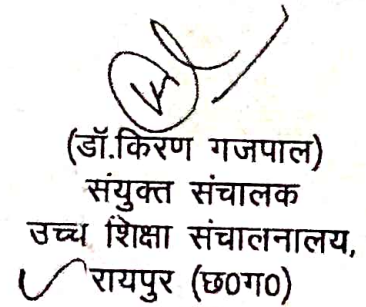 (डॉ.किरण गजपाल)
संयुक्त संचालक
उच्च शिक्षा संचालनालय,
रायपुर (छ0ग0)